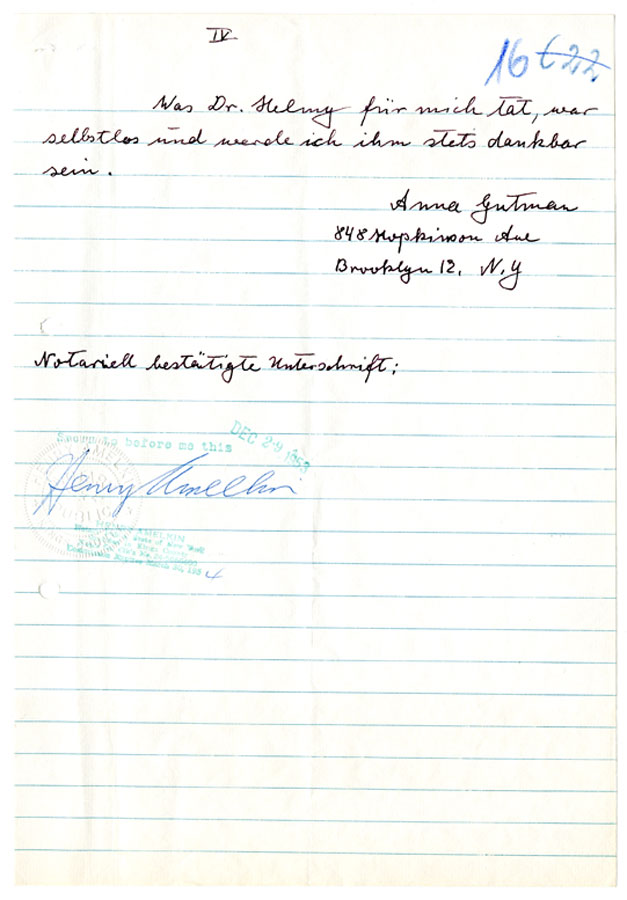 IV
16
22
Was Dr. Helmy für mich tat, war
selbstlos und werde ich ihm stets dankbar
sein.
Anna Gutman
848 Hopkinson Ave
Brooklyn 12, N.Y
Notariell bestätigte Unterschrift:
DEC 29 1953
Sworn to before me this
Henry Amelkin
HENRY AMELKIN
State of New York